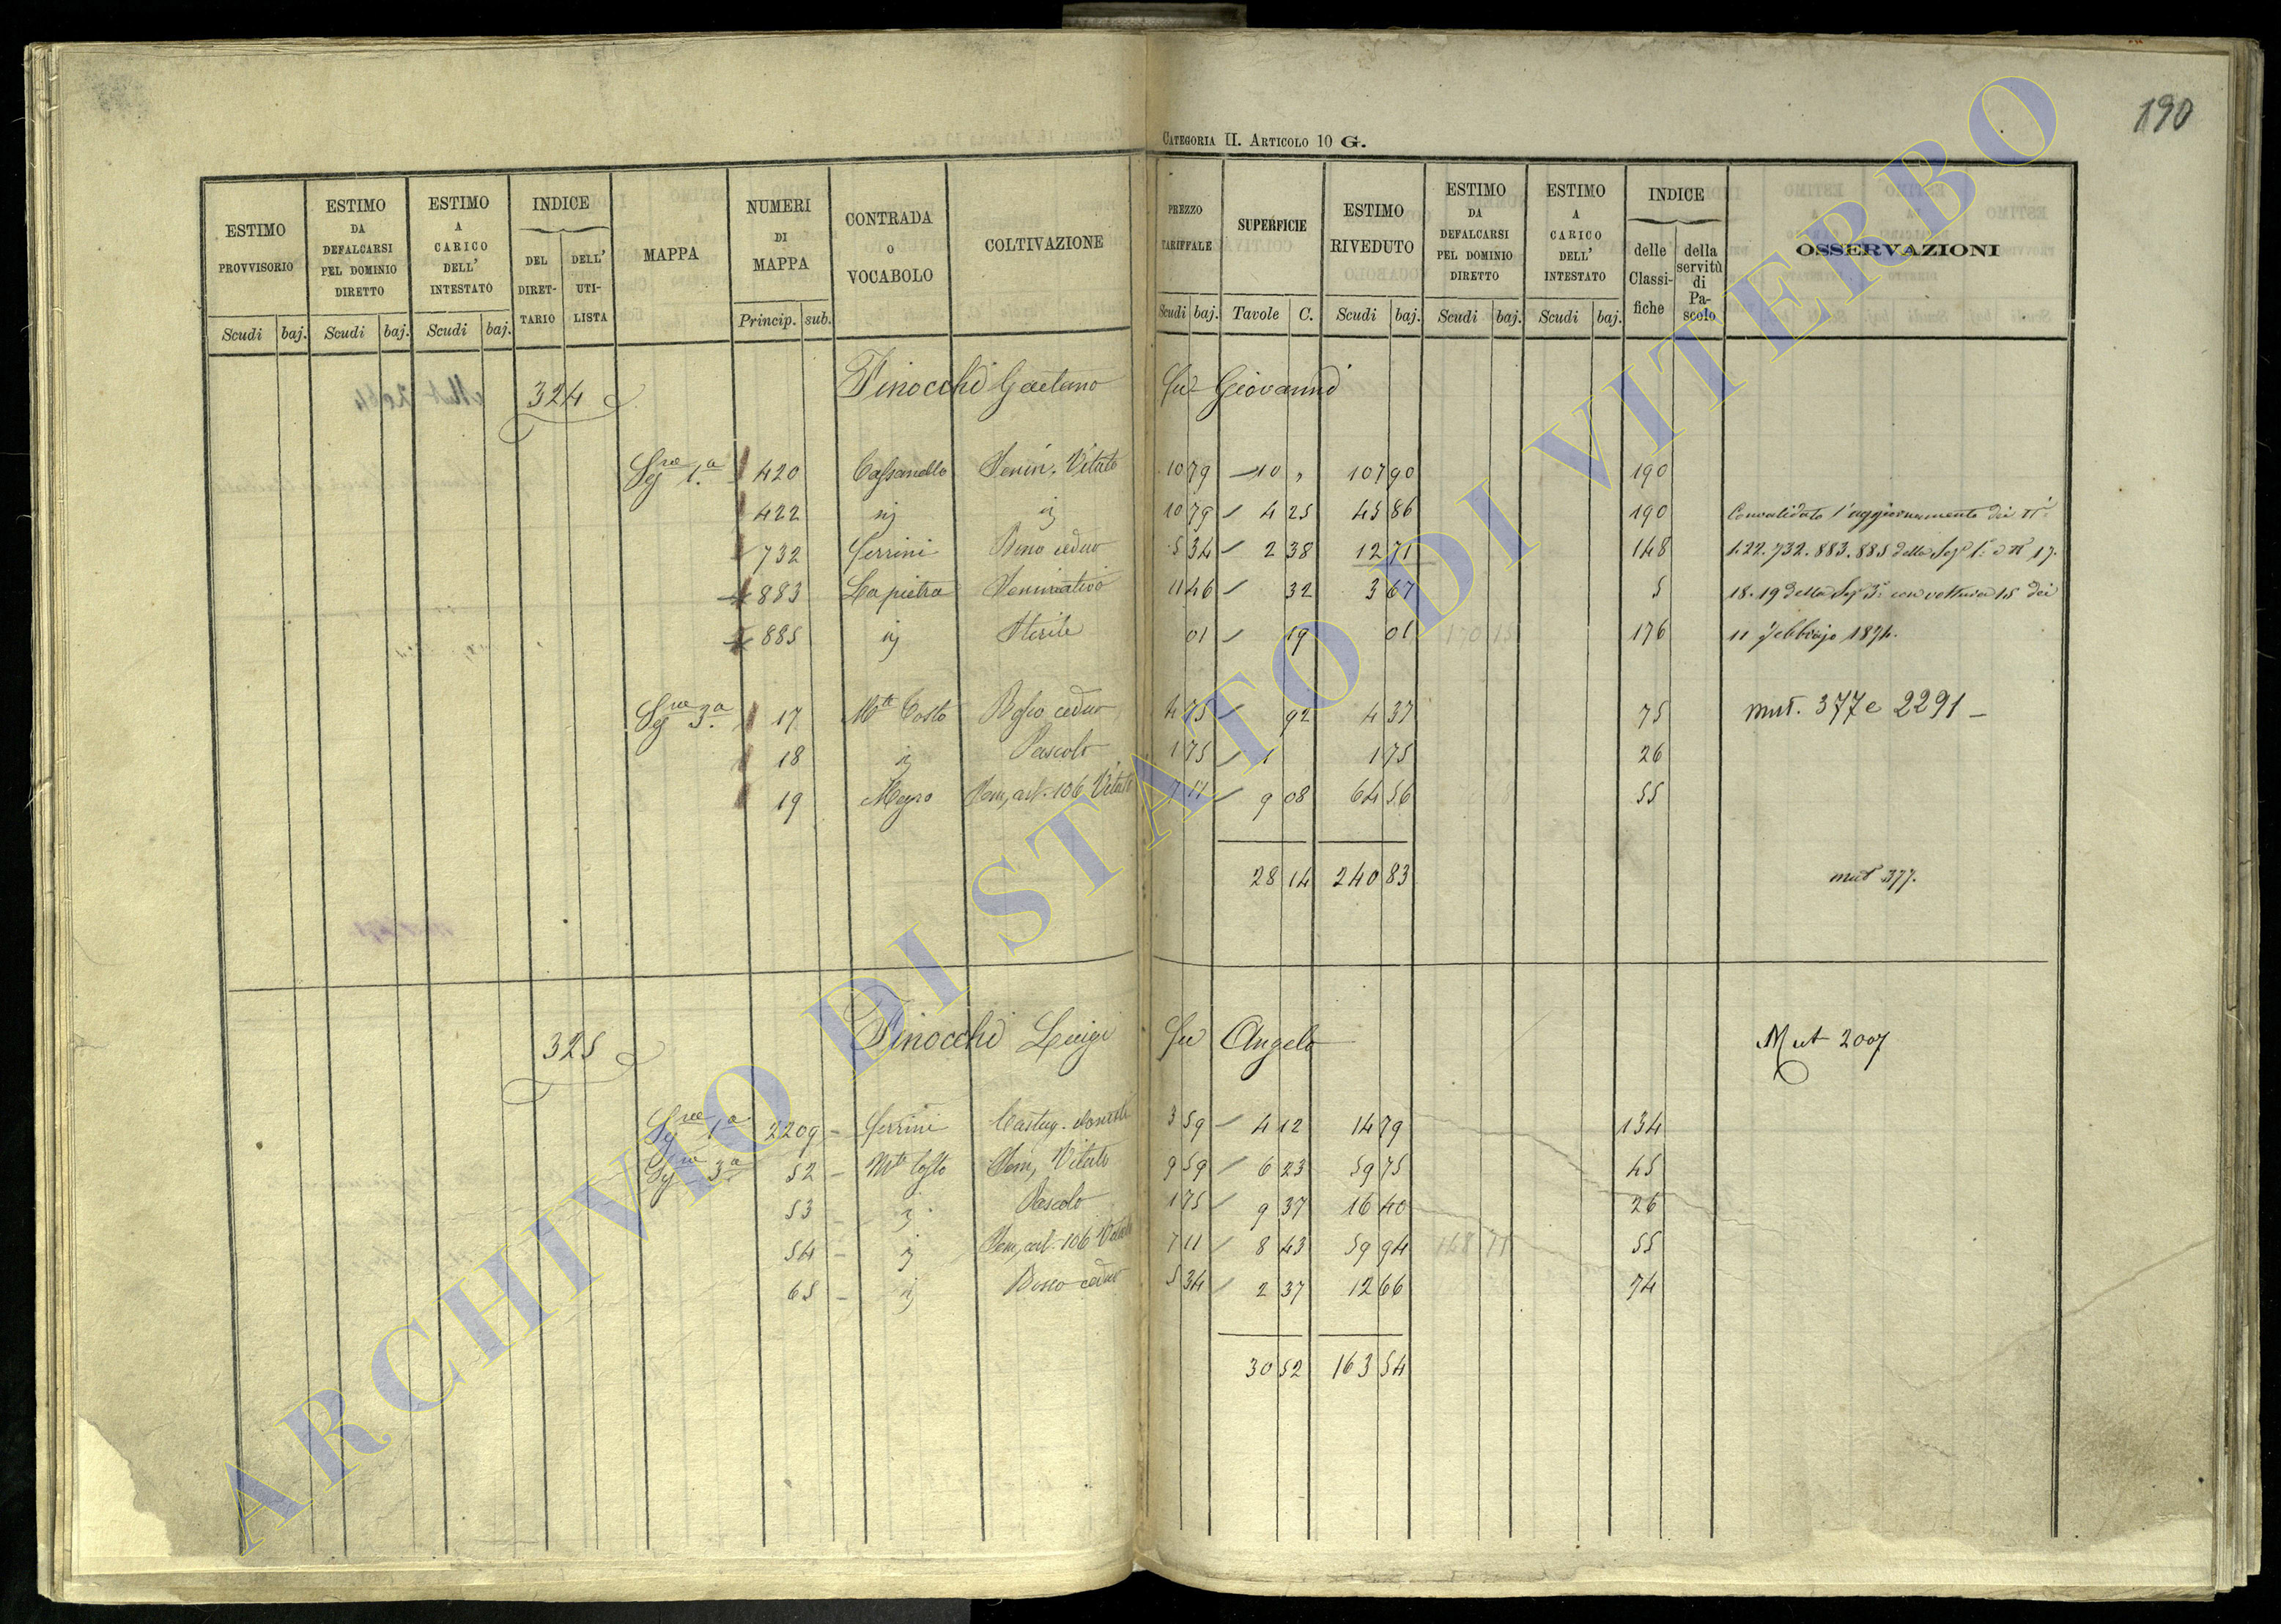 190
CATEGORIA II. ARTICOLO 10 G.
ESTIMO PROVVISORIO Scudi baj. ESTIMO DA DEFALCARSI PEL DOMINIO DIRETTO Scudi baj. ESTIMO A CARICO DELL' INTESTATO Scudi baj. INDICE DEL DIRET-TARIO DELL' UTI-LISTA MAPPA NUMERI DI MAPPA Princip. sub. CONTRADA O VOCABOLO COLTIVAZIONE PREZZO TARIFFALE Scudi baj. SUPERFICIE Tavole C. ESTIMO RIVEDUTO Scudi baj. ESTIMO DA DEFALCARSI PEL DOMINIO DIRETTO Scudi baj. ESTIMO A CARICO DELL' INTESTATO Scudi baj. INDICE delle Classi-fiche della servitù di Pa-scolo OSSERVAZIONI
324 Finocchi Gaetano fu Giovanni
Sez.ne 1.a 420 Cassanello Semin. Vitato 10 79 10 " 107 90 190
422 " " 10 79 4 25 45 86 190 Convalidato l'aggiornamento dei N.i
732 ferrini Bosco ceduo 5 34 2 38 12 71 148 422. 732. 883. 885 della Sez.e 1.a e N.i 17.
883 La pietra Seminativo 11 46 32 3 67 5 18. 19 della Sez.e 3.a con voltura 15 dei
885 " Sterile 01 19 01 176 11 febbrajo 1874.
Sez.ne 3.a 17 M.te Costo Bosco ceduo 4 75 92 4 37 75 mut. 377 e 2291
18 " Pascolo 1 75 1 1 75 26
19 Sem, art. 106 Vitato 7 11 9 08 64 56 55
28 14 240 83 mut 377.
325 Finocchi Luigi fu Angelo Mut 2007
Sez.ne 1.a 2209 ferrini 3 59 4 12 14 79 134
Sez.ne 3.a 52 M.te Costo Sem, Vitato 9 59 6 23 59 75 45
53 " Pascolo 1 75 9 37 16 40 26
54 " Sem, art. 106 Vitato 7 11 8 43 59 94 55
65 " Bosco ceduo 5 34 2 37 12 66 74
30 52 163 54
ARCHIVIO DI STATO DI VITERBO